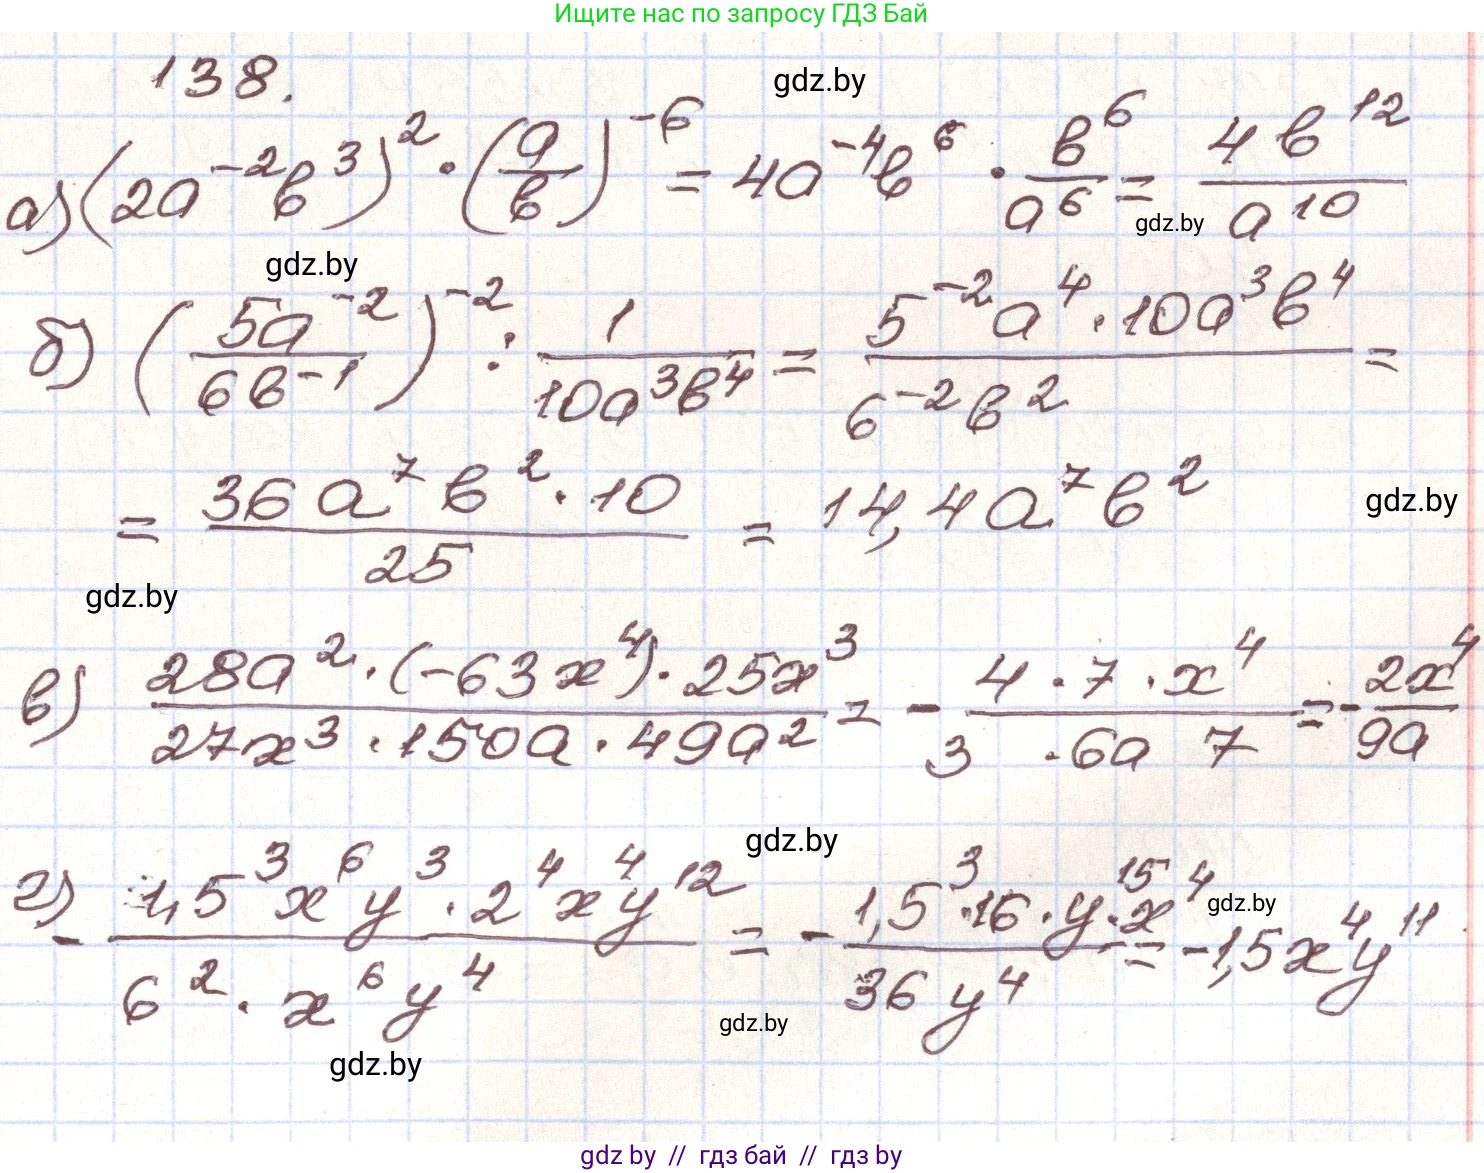 Ищите нас по запросу ГДЗ Бай
138.
gdz.by
а) (2a⁻²b³)² · (a/b)⁻⁶ = 4a⁻⁴b⁶ · b⁶/a⁶ = 4b¹²/a¹⁰
gdz.by
gdz.by
б) (5a⁻²/6b⁻¹)⁻² : 1/10a³b⁴ = 5⁻²a⁴·10a³b⁴/6⁻²b² =
= 36a⁷b²·10/25 = 14,4a⁷b²
gdz.by
gdz.by
в) 28a²·(-63x⁴)·25x³/27x³·150a·49a² = - 4·7·x⁴/3·6a 7 = - 2x⁴/9a
gdz.by
г) - 1,5³x⁶y³·2⁴x⁴y¹²/6²·x⁶y⁴ = - 1,5³·16·y¹⁵·x⁴/36y⁴ = -1,5x⁴y¹¹
gdz.by
gdz.by
gdz.by
gdz by // гдз бай // гдз by